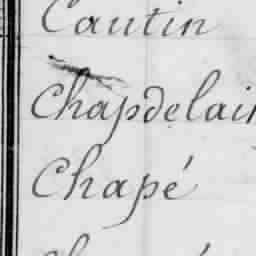 Cautin
Chapdelain
Chapé